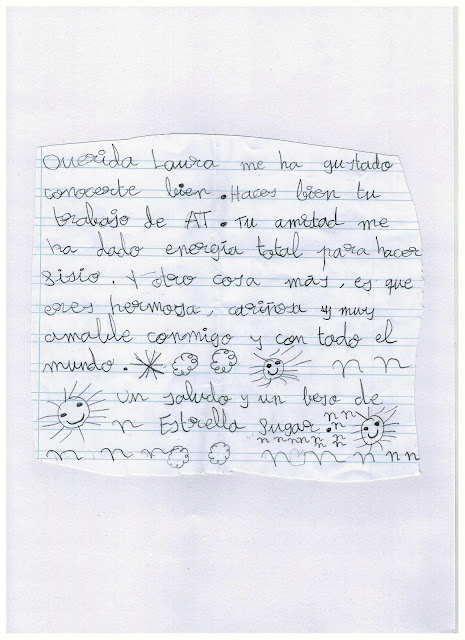 Querida Laura me ha gustado
conocerte bien. Haces bien tu
trabajo de AT. Tu amistad me
ha dado energía total para hacer
sisio. Y otro cosa más, es que
eres hermosa, cariñosa y muy
amable conmigo y con todo el
mundo.
n n
un saludo y un beso de
n n
n Estrella Sugar.
n n n n n n
n n n n n n n n n